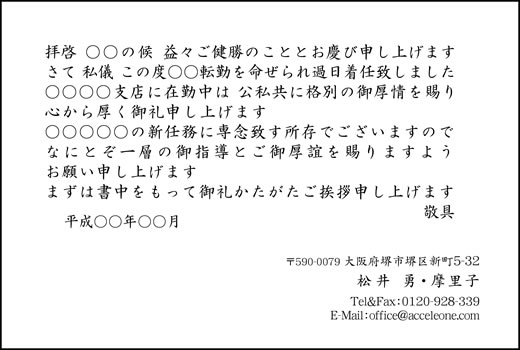 拝啓 〇〇の候 益々ご健勝のこととお慶び申し上げます
さて 私儀 この度〇〇転勤を命ぜられ過日着任致しました
〇〇〇〇支店に在勤中は 公私共に格別の御厚情を賜り
心から厚く御礼申し上げます
〇〇〇〇〇の新任務に専念致す所存でございますので
なにとぞ一層の御指導とご御厚誼を賜りますよう
お願い申し上げます
まずは書中をもって御礼かたがたご挨拶申し上げます
敬具
平成〇〇年〇〇月
〒590-0079 大阪府堺市堺区新町5-32
松井 勇・摩里子
Tel&Fax:0120-928-339
E-Mail:office@acceleone.com